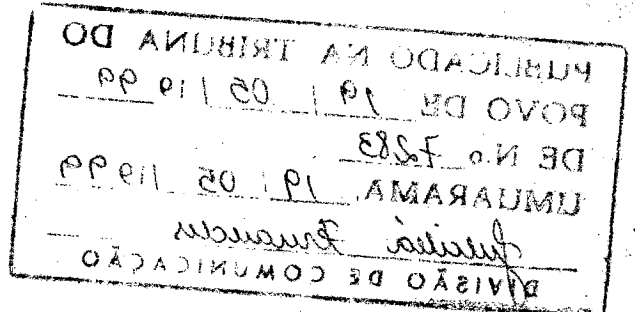 PUBLICADO NA TRIBUNA DO
POVO DE 19 / 05 / 19 99
DE N.o 7283
UMUARAMA, 19 / 05 / 19 99
DIVISÃO DE COMUNICAÇÃO